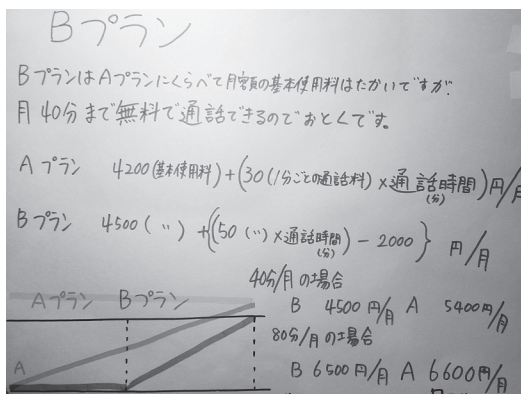 Bプラン
BプランはAプランにくらべて月額の基本使用料はたかいですが、
月40分まで無料で通話できるのでおとくです。
Aプラン 4200(基本使用料)+(30(1分ごとの通話料)×通話時間(分))円/月
Bプラン 4500(〃)+{(50(〃)×通話時間(分))-2000} 円/月
40分/月の場合
Aプラン Bプラン
B 4500円/月 A 5400円/月
80分/月の場合
A
B 6500円/月 A 6600円/月